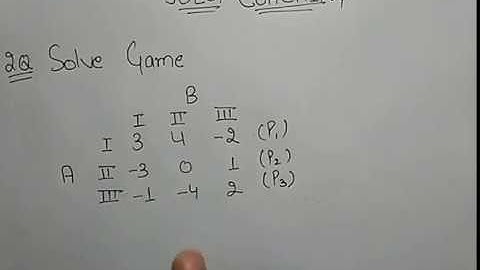 2Q Solve Game
B
I II III
I 3 4 -2 (P₁)
A II -3 0 1 (P₂)
III -1 -4 2 (P₃)